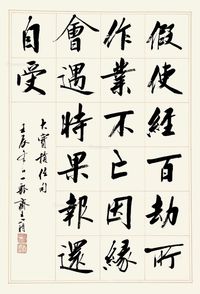 假使經百劫所
作業不亡因緣
會遇時果報還
自受
大寶積經句